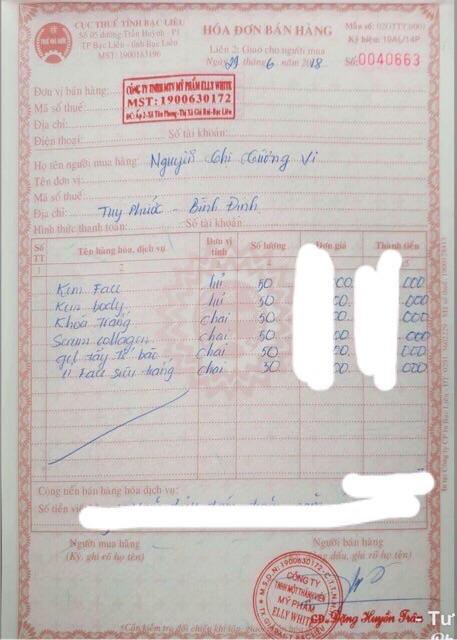 CỤC THUẾ TỈNH BẠC LIÊU
Số 05 đường Trần Huỳnh - P1
TP Bạc Liêu - tỉnh Bạc Liêu
MST: 1900163196
HÓA ĐƠN BÁN HÀNG
Liên 2: Giao cho người mua
Ngày 29 tháng 6 năm 2018
Mẫu số: 02GTTT3/001
Ký hiệu: 19AL/14P
Số: 0040663
Đơn vị bán hàng:
CÔNG TY TNHH MTV MỸ PHẨM ELLY WHITE
MST: 1900630172
ĐC: Ấp 2-Xã Tân Phong-Thị Xã Giá Rai-Bạc Liêu
Mã số thuế:
Địa chỉ:
Điện thoại: Số tài khoản:
Họ tên người mua hàng: Nguyễn Thị Tường Vi
Tên đơn vị:
Mã số thuế:
Địa chỉ: Tuy Phước - Bình Định
Hình thức thanh toán: Số tài khoản:
Số TT Tên hàng hóa, dịch vụ Đơn vị tính Số lượng Đơn giá Thành tiền
Kem Face hủ 50 000 .000
Kem body hủ 50 000 .000
Khóa trắng chai 50 000. .000
Serum collagen chai 50 000 .000
gel tẩy tế bào chai 50 000. 000
Face siêu trắng chai 50 000
Cộng tiền bán hàng hóa dịch vụ:
Số tiền viết
Người mua hàng
(Ký, ghi rõ họ tên)
Người bán hàng
dấu, ghi rõ họ tên)
M.S.D.N: 1900630172-C.T.T.N.H.H
CÔNG TY
TNHH MỘT THÀNH VIÊN
MỸ PHẨM
ELLY WHITE
Đặng Huyền Trân
(Cần kiểm tra đối chiếu khi lập, giao, nhận hóa đơn)
Tư